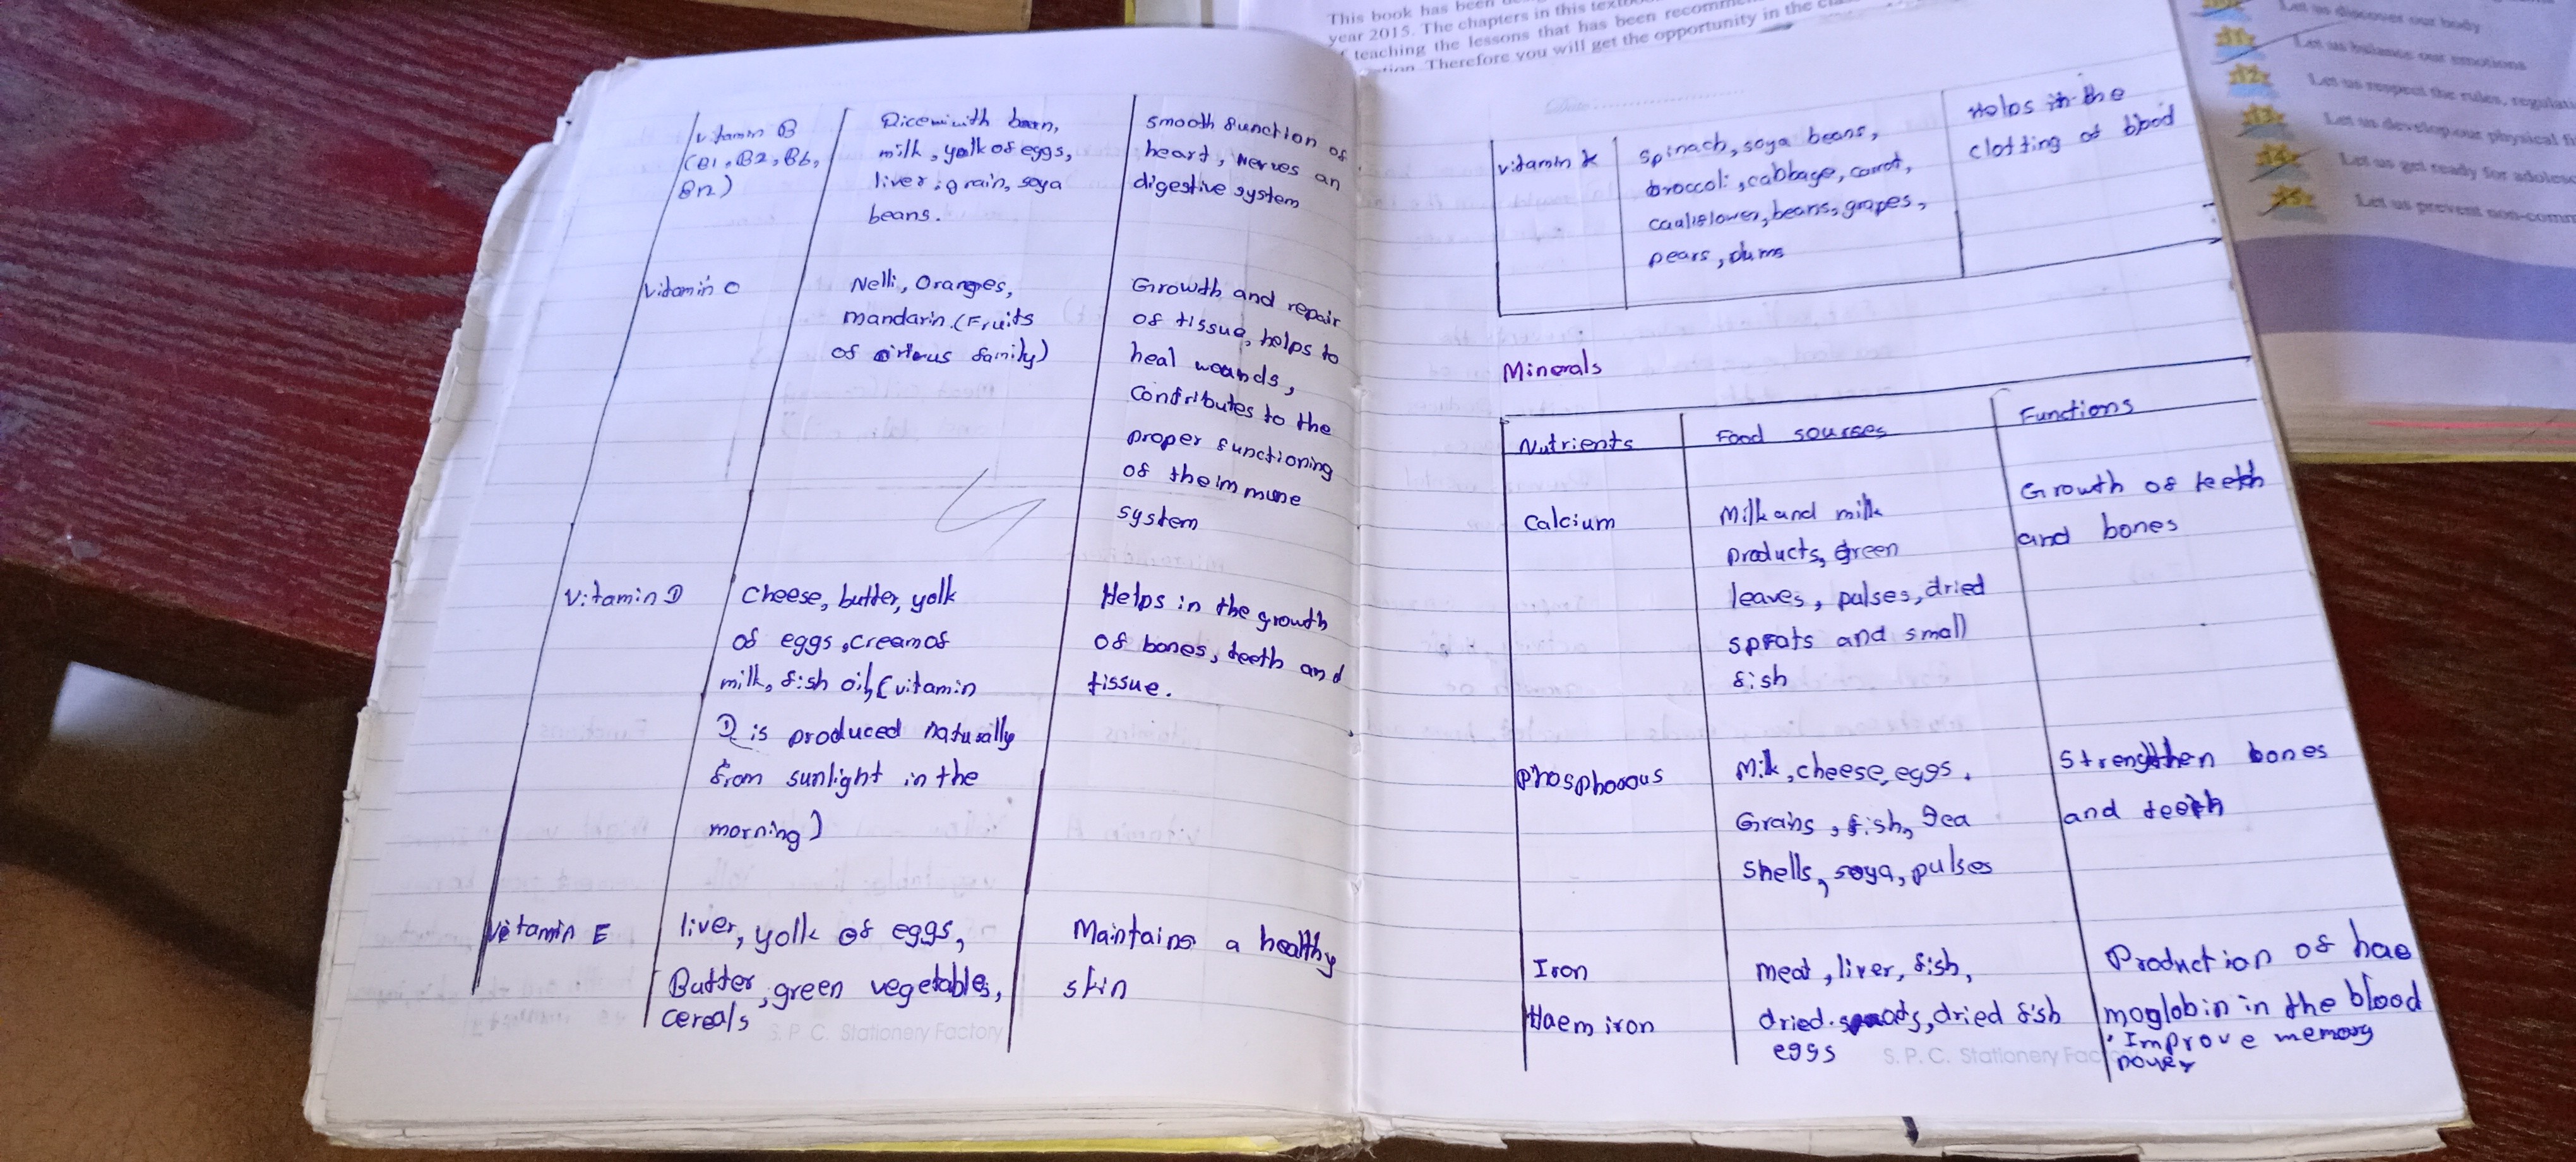 This book has been
year 2015. The chapters in this
teaching the lessons that has been
Therefore you will get the opportunity in the
Let us discover our body
11 Let us balance our emotions
12 Let us respect the rules,
13 Let us develop our physical
14 Let us get ready for
15 Let us prevent
vitamin B
(B1, B2, B6,
Bn)
Ricewith bran,
milk, yolk of eggs,
liver, grain, soya
beans.
smooth function of
heart, nerves an
digestive system
vitamin C
Nelli, Oranges,
mandarin. (Fruits
of family)
Growth and repair
of tissue, helps to
heal wounds,
contributes to the
proper functioning
of the immune
system
Vitamin D
Cheese, butter, yolk
of eggs, cream of
milk, fish oil, (vitamin
D is produced naturally
from sunlight in the
morning)
Helps in the growth
of bones, teeth and
tissue.
Vitamin E
liver, yolk of eggs,
Butter, green vegetables,
cereals
Maintains a healthy
skin
S. P. C. Stationery Factory
vitamin K
spinach, soya beans,
broccoli, cabbage, carrot,
beans, grapes,
pears, plums
Helps in the
clotting of blood
Minerals
Nutrients
Food sourses
Functions
Calcium
Milk and milk
products, green
leaves, pulses, dried
sprats and small
fish
Growth of teeth
and bones
Milk, cheese, eggs,
Grains, fish, Sea
shells, soya, pulses
Strengthen bones
and teeth
Iron
Haem iron
meat, liver, fish,
dried. dried fish
eggs
Production of hae
moglobin in the blood
. Improve memory
power
S. P. C. Stationery Fac